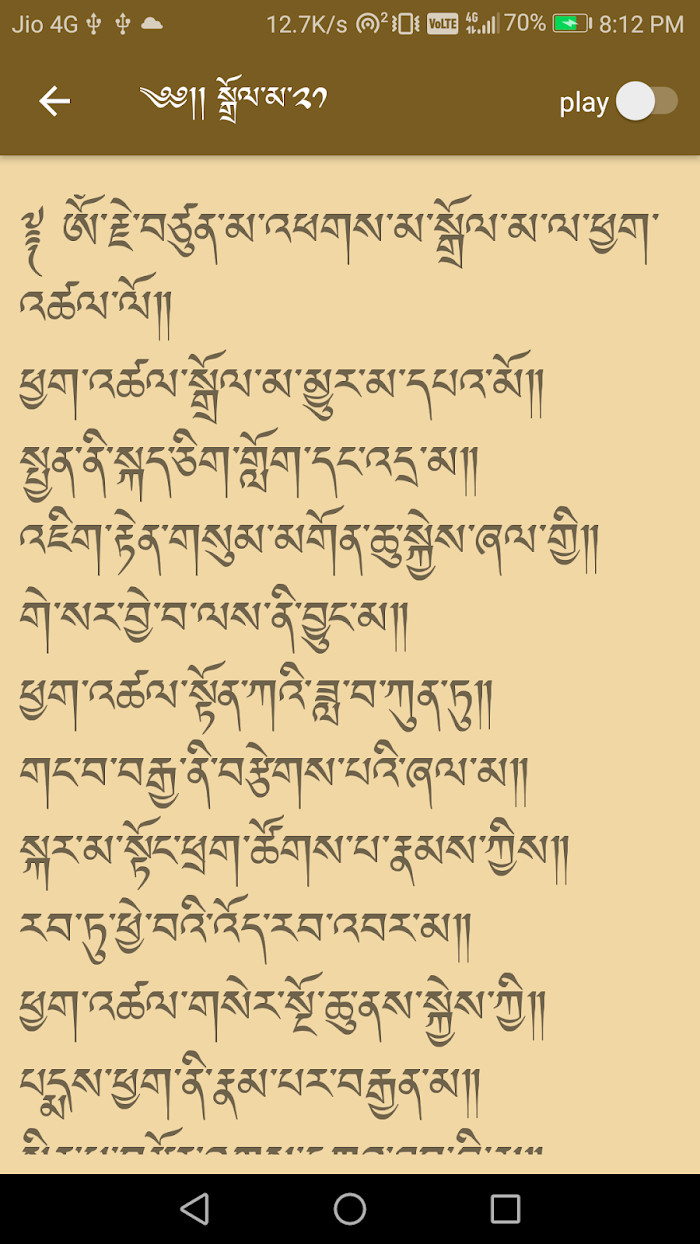 Jio 4G 12.7K/s 2 VoLTE 4G 70% 8:12 PM
༄༅།། སྒྲོལ་མ་༢༡ play
༈ ཨོཾ་རྗེ་བཙུན་མ་འཕགས་མ་སྒྲོལ་མ་ལ་ཕྱག་
འཚལ་ལོ།།
ཕྱག་འཚལ་སྒྲོལ་མ་མྱུར་མ་དཔའ་མོ།།
སྤྱན་ནི་སྐད་ཅིག་གློག་དང་འདྲ་མ།།
འཇིག་རྟེན་གསུམ་མགོན་ཆུ་སྐྱེས་ཞལ་གྱི།།
གེ་སར་བྱེ་བ་ལས་ནི་བྱུང་མ།།
ཕྱག་འཚལ་སྟོན་ཀའི་ཟླ་བ་ཀུན་ཏུ།།
གང་བ་བརྒྱ་ནི་བརྩེགས་པའི་ཞལ་མ།།
སྐར་མ་སྟོང་ཕྲག་ཚོགས་པ་རྣམས་ཀྱིས།།
རབ་ཏུ་ཕྱེ་བའི་འོད་རབ་འབར་མ།།
ཕྱག་འཚལ་གསེར་སྔོ་ཆུ་ནས་སྐྱེས་ཀྱི།།
པདྨས་ཕྱག་ནི་རྣམ་པར་བརྒྱན་མ།།